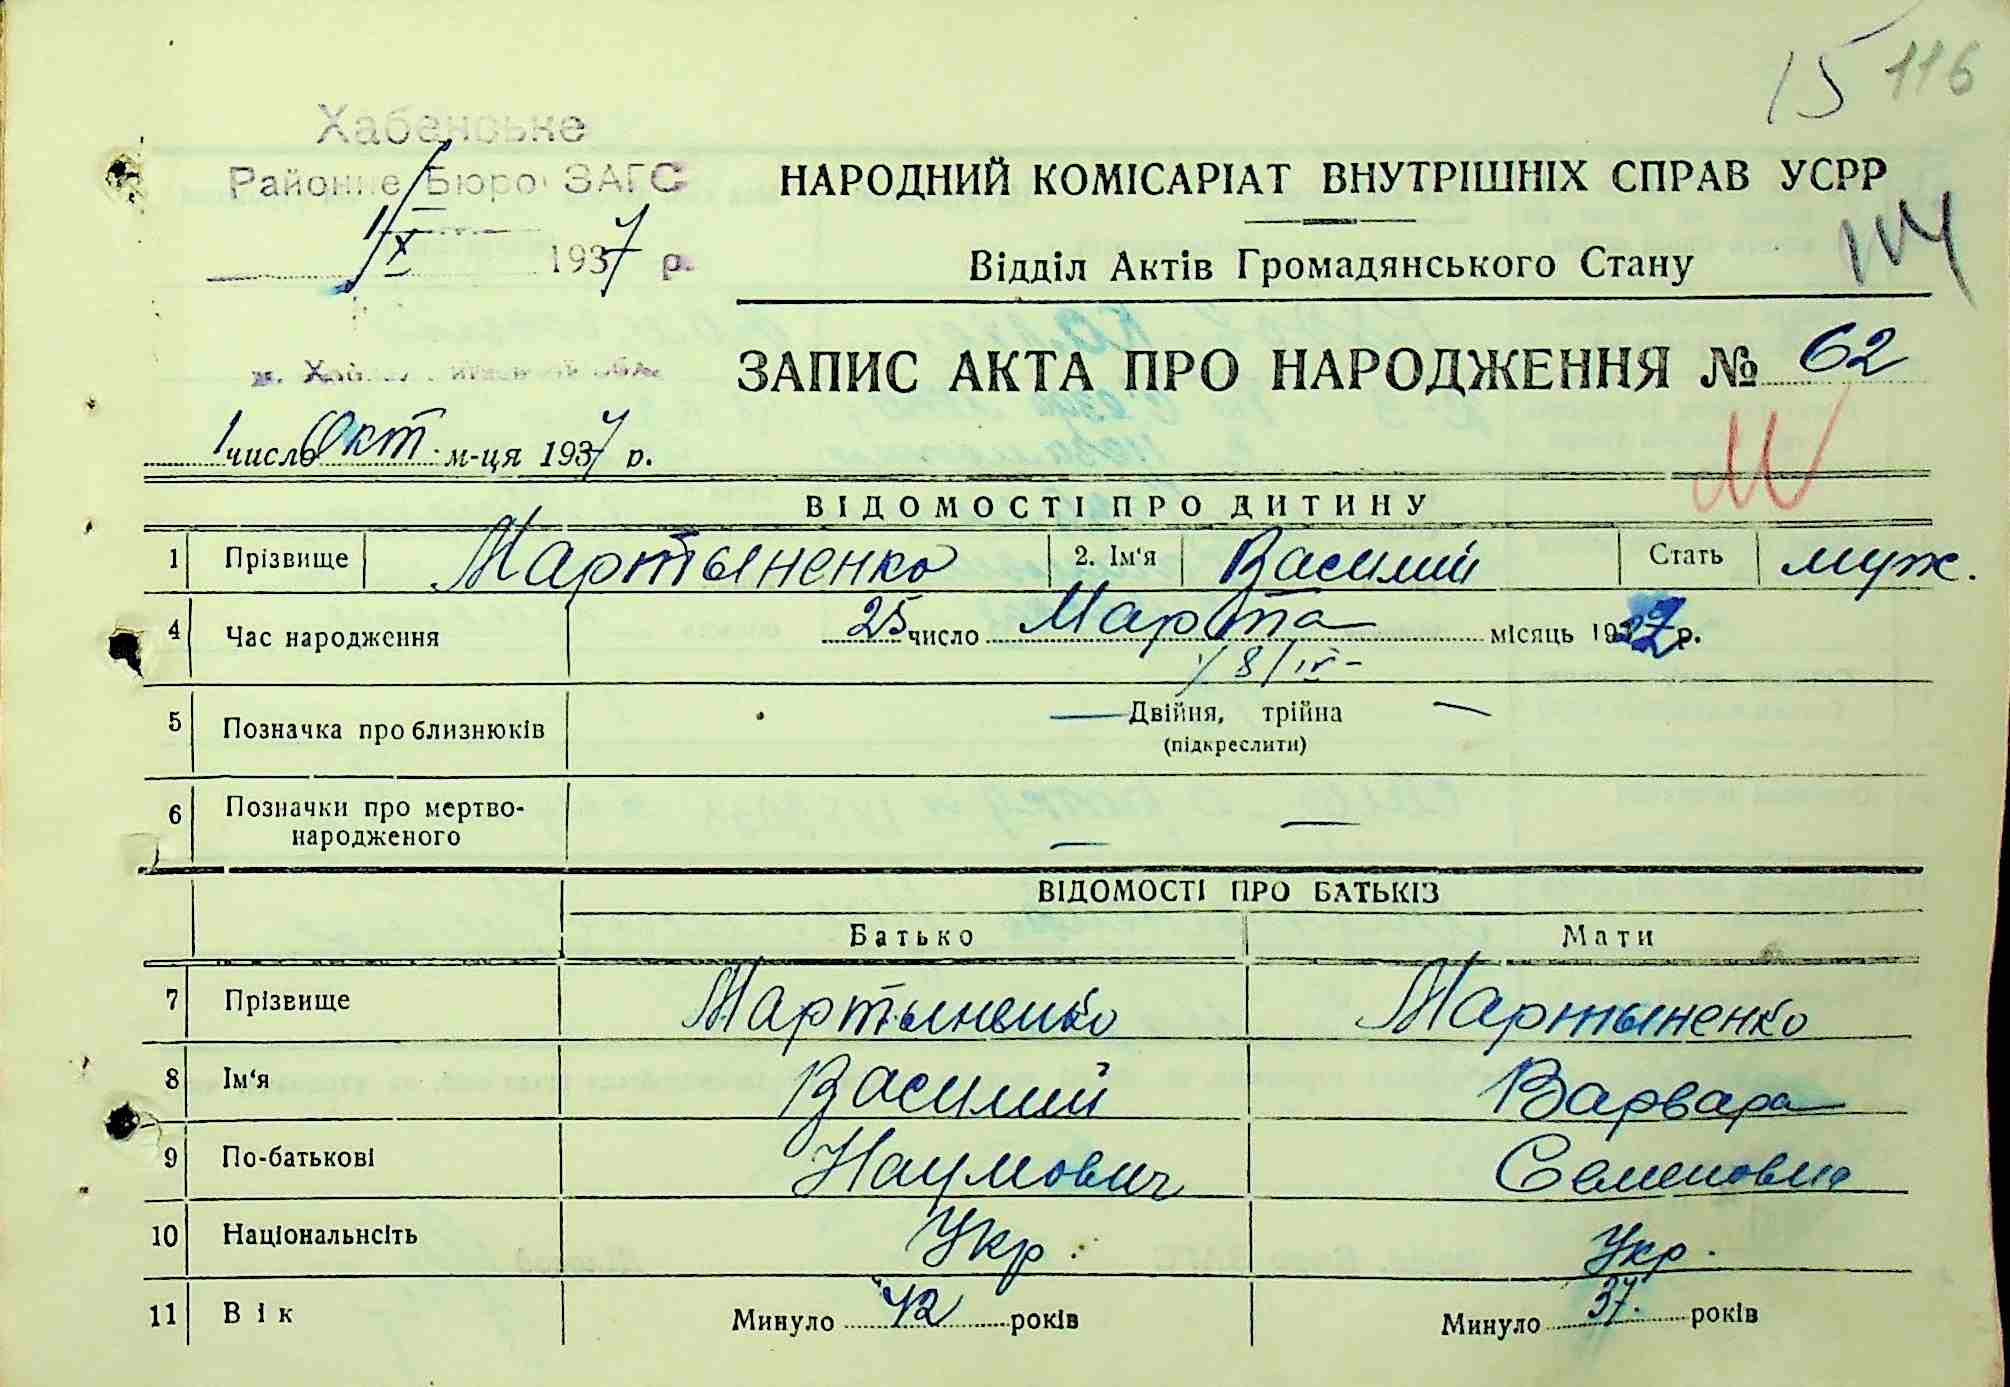 15 116
Хабенське
Районне Бюро ЗАГС
1/X 1937 р.
НАРОДНИЙ КОМІСАРІАТ ВНУТРІШНІХ СПРАВ УСРР
Відділ Актів Громадянського Стану
ЗАПИС АКТА ПРО НАРОДЖЕННЯ № 62
1 число Окт. м-ця 1937 р.
ВІДОМОСТІ ПРО ДИТИНУ
1 Прізвище Мартыненко 2. Ім'я Василий Стать муж.
4 Час народження 25 число Марта місяць 193 р.
5 Позначка про близнюків Двійня, трійна
(підкреслити)
6 Позначки про мертво-
народженого
ВІДОМОСТІ ПРО БАТЬКІЗ
Батько Мати
7 Прізвище Мартыненко Мартыненко
8 Ім'я Василий Варвара
9 По-батькові Наумович Семеновна
10 Національнсіть Укр. Укр.
11 Вік Минуло 42 років Минуло 37. років